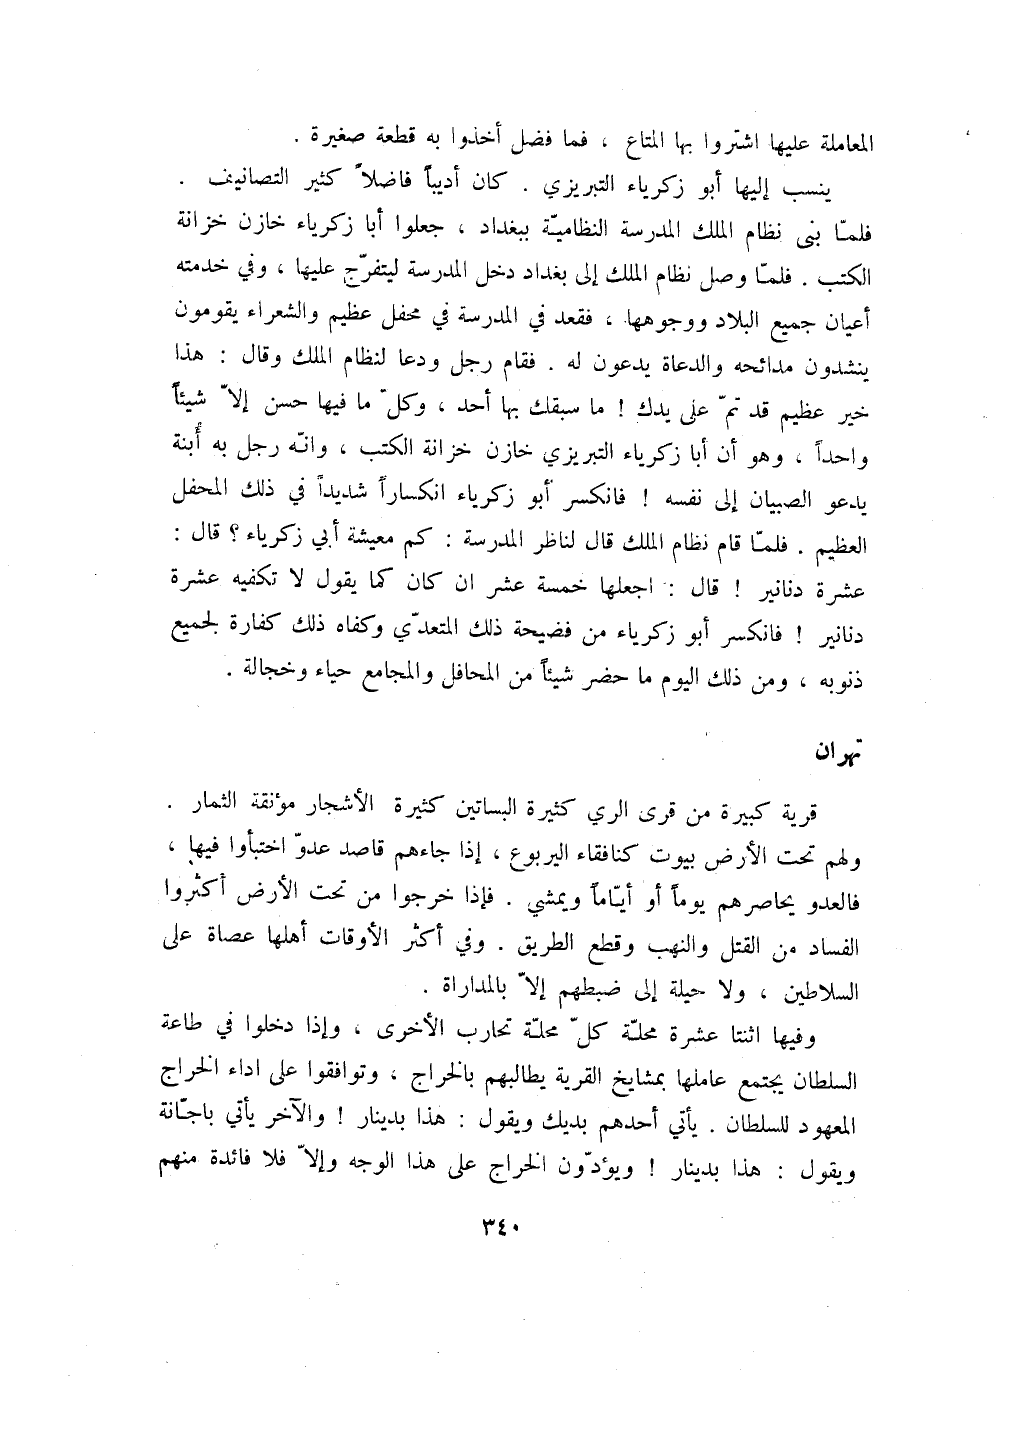 المعاملة عليها اشتروا بها المتاع ، فما فضل أخذوا به قطعة صغيرة .
ينسب إليها أبو زكرياء التبريزي . كان أديباً فاضلاً كثير التصانيف .
فلمّا بنى نظام الملك المدرسة النظاميّة ببغداد ، جعلوا أبا زكرياء خازن خزانة
الكتب . فلمّا وصل نظام الملك إلى بغداد دخل المدرسة ليتفرّج عليها ، وفي خدمته
أعيان جميع البلاد ووجوهها ، فقعد في المدرسة في محفل عظيم والشعراء يقومون
ينشدون مدائحه والدعاة يدعون له . فقام رجل ودعا لنظام الملك وقال : هذا
خير عظيم قد تمّ على يدك ! ما سبقك بها أحد ، وكلّ ما فيها حسن إلاّ شيئاً
واحداً ، وهو أن أبا زكرياء التبريزي خازن خزانة الكتب ، وانّه رجل به أُبنة
يدعو الصبيان إلى نفسه ! فانكسر أبو زكرياء انكساراً شديداً في ذلك المحفل
العظيم . فلمّا قام نظام الملك قال لناظر المدرسة : كم معيشة أبي زكرياء ؟ قال :
عشرة دنانير ! قال : اجعلها خمسة عشر ان كان كما يقول لا تكفيه عشرة
دنانير ! فانكسر أبو زكرياء من فضيحة ذلك المتعدّي وكفاه ذلك كفارة لجميع
ذنوبه ، ومن ذلك اليوم ما حضر شيئاً من المحافل والمجامع حياء وخجالة .
تهران
قرية كبيرة من قرى الري كثيرة البساتين كثيرة الأشجار مؤنقة الثمار .
ولهم تحت الأرض بيوت كنافقاء اليربوع ، إذا جاءهم قاصد عدوّ اختبأوا فيها ،
فالعدو يحاصرهم يوماً أو أيّاماً ويمشي . فإذا خرجوا من تحت الأرض أكثروا
الفساد من القتل والنهب وقطع الطريق . وفي أكثر الأوقات أهلها عصاة على
السلاطين ، ولا حيلة إلى ضبطهم إلاّ بالمداراة .
وفيها اثنتا عشرة محلّة كلّ محلّة تحارب الأخرى ، وإذا دخلوا في طاعة
السلطان يجتمع عاملها بمشايخ القرية يطالبهم بالخراج ، وتوافقوا على اداء الخراج
المعهود للسلطان . يأتي أحدهم بديك ويقول : هذا بدينار ! والآخر يأتي باجّانة
ويقول : هذا بدينار ! ويؤدّون الخراج على هذا الوجه وإلاّ فلا فائدة منهم
٣٤٠